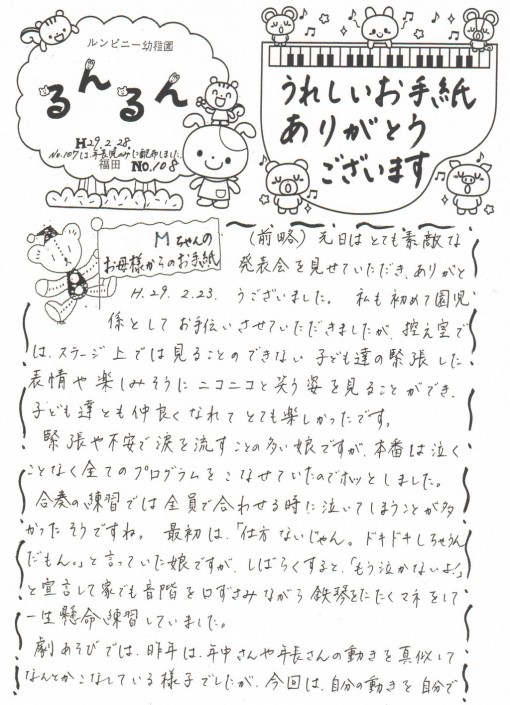 ルンビニー幼稚園
るんるん
H29.2.28.
No.107は、年長児のみに配布しました。
福田 NO.108
うれしいお手紙
ありがとう
ございます
Mちゃんの
お母様からのお手紙
H.29.2.23.
(前略) 先日はとても素敵な
発表会を見せていただき、ありがと
うございました。 私も初めて園児
係としてお手伝いさせていただきましたが、控え室で
は、ステージ上では見ることのできない子ども達の緊張した
表情や楽しみそうにニコニコと笑う姿を見ることができ、
子ども達とも仲良くなれてとても楽しかったです。
緊張や不安で涙を流すことの多い娘ですが、本番は泣く
ことなく全てのプログラムをこなせていたのでホッとしました。
合奏の練習では全員で合わせる時に泣いてしまうことが多
かったそうですね。 最初は、「仕方ないじゃん。ドキドキしちゃうん
だもん。」と言っていた娘ですが、しばらくすると、「もう泣かないよ!」
と宣言して家でも音階を口ずさみながら鉄琴をたたくマネをして
一生懸命練習していました。
劇あそびでは、昨年は、年中さんや年長さんの動きを真似して
なんとかこなしている様子でしたが、今回は、自分の動きを自分で